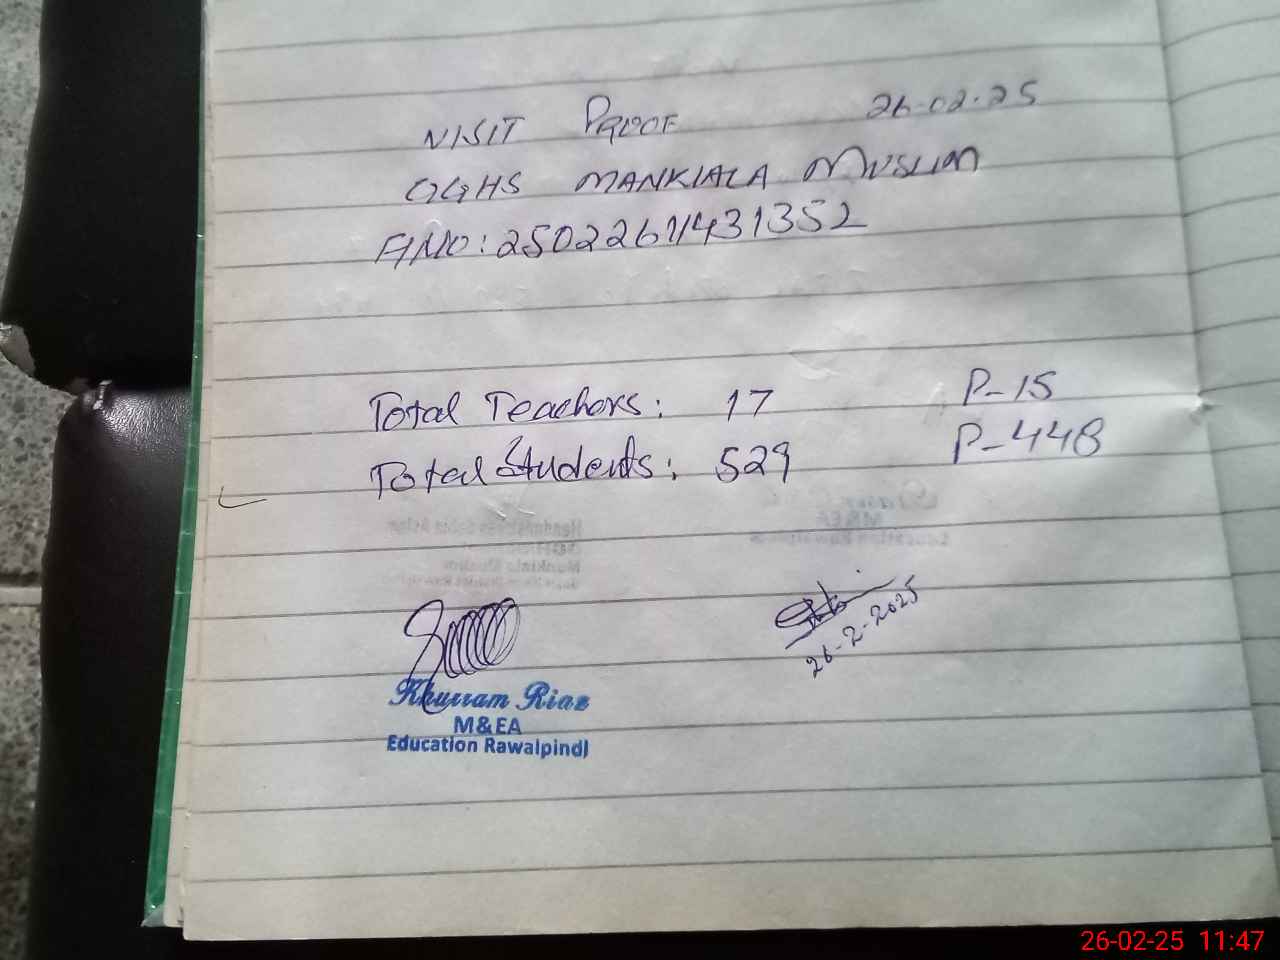 VISIT PROOF 26-02-25
GGHS MANKIALA MUSLIM
A/NO: 25022611431352
Total Teachers: 17 P-15
Total Students: 529 P-448
26-2-2025
Khurram Riaz
M&EA
Education Rawalpindi
26-02-25 11:47